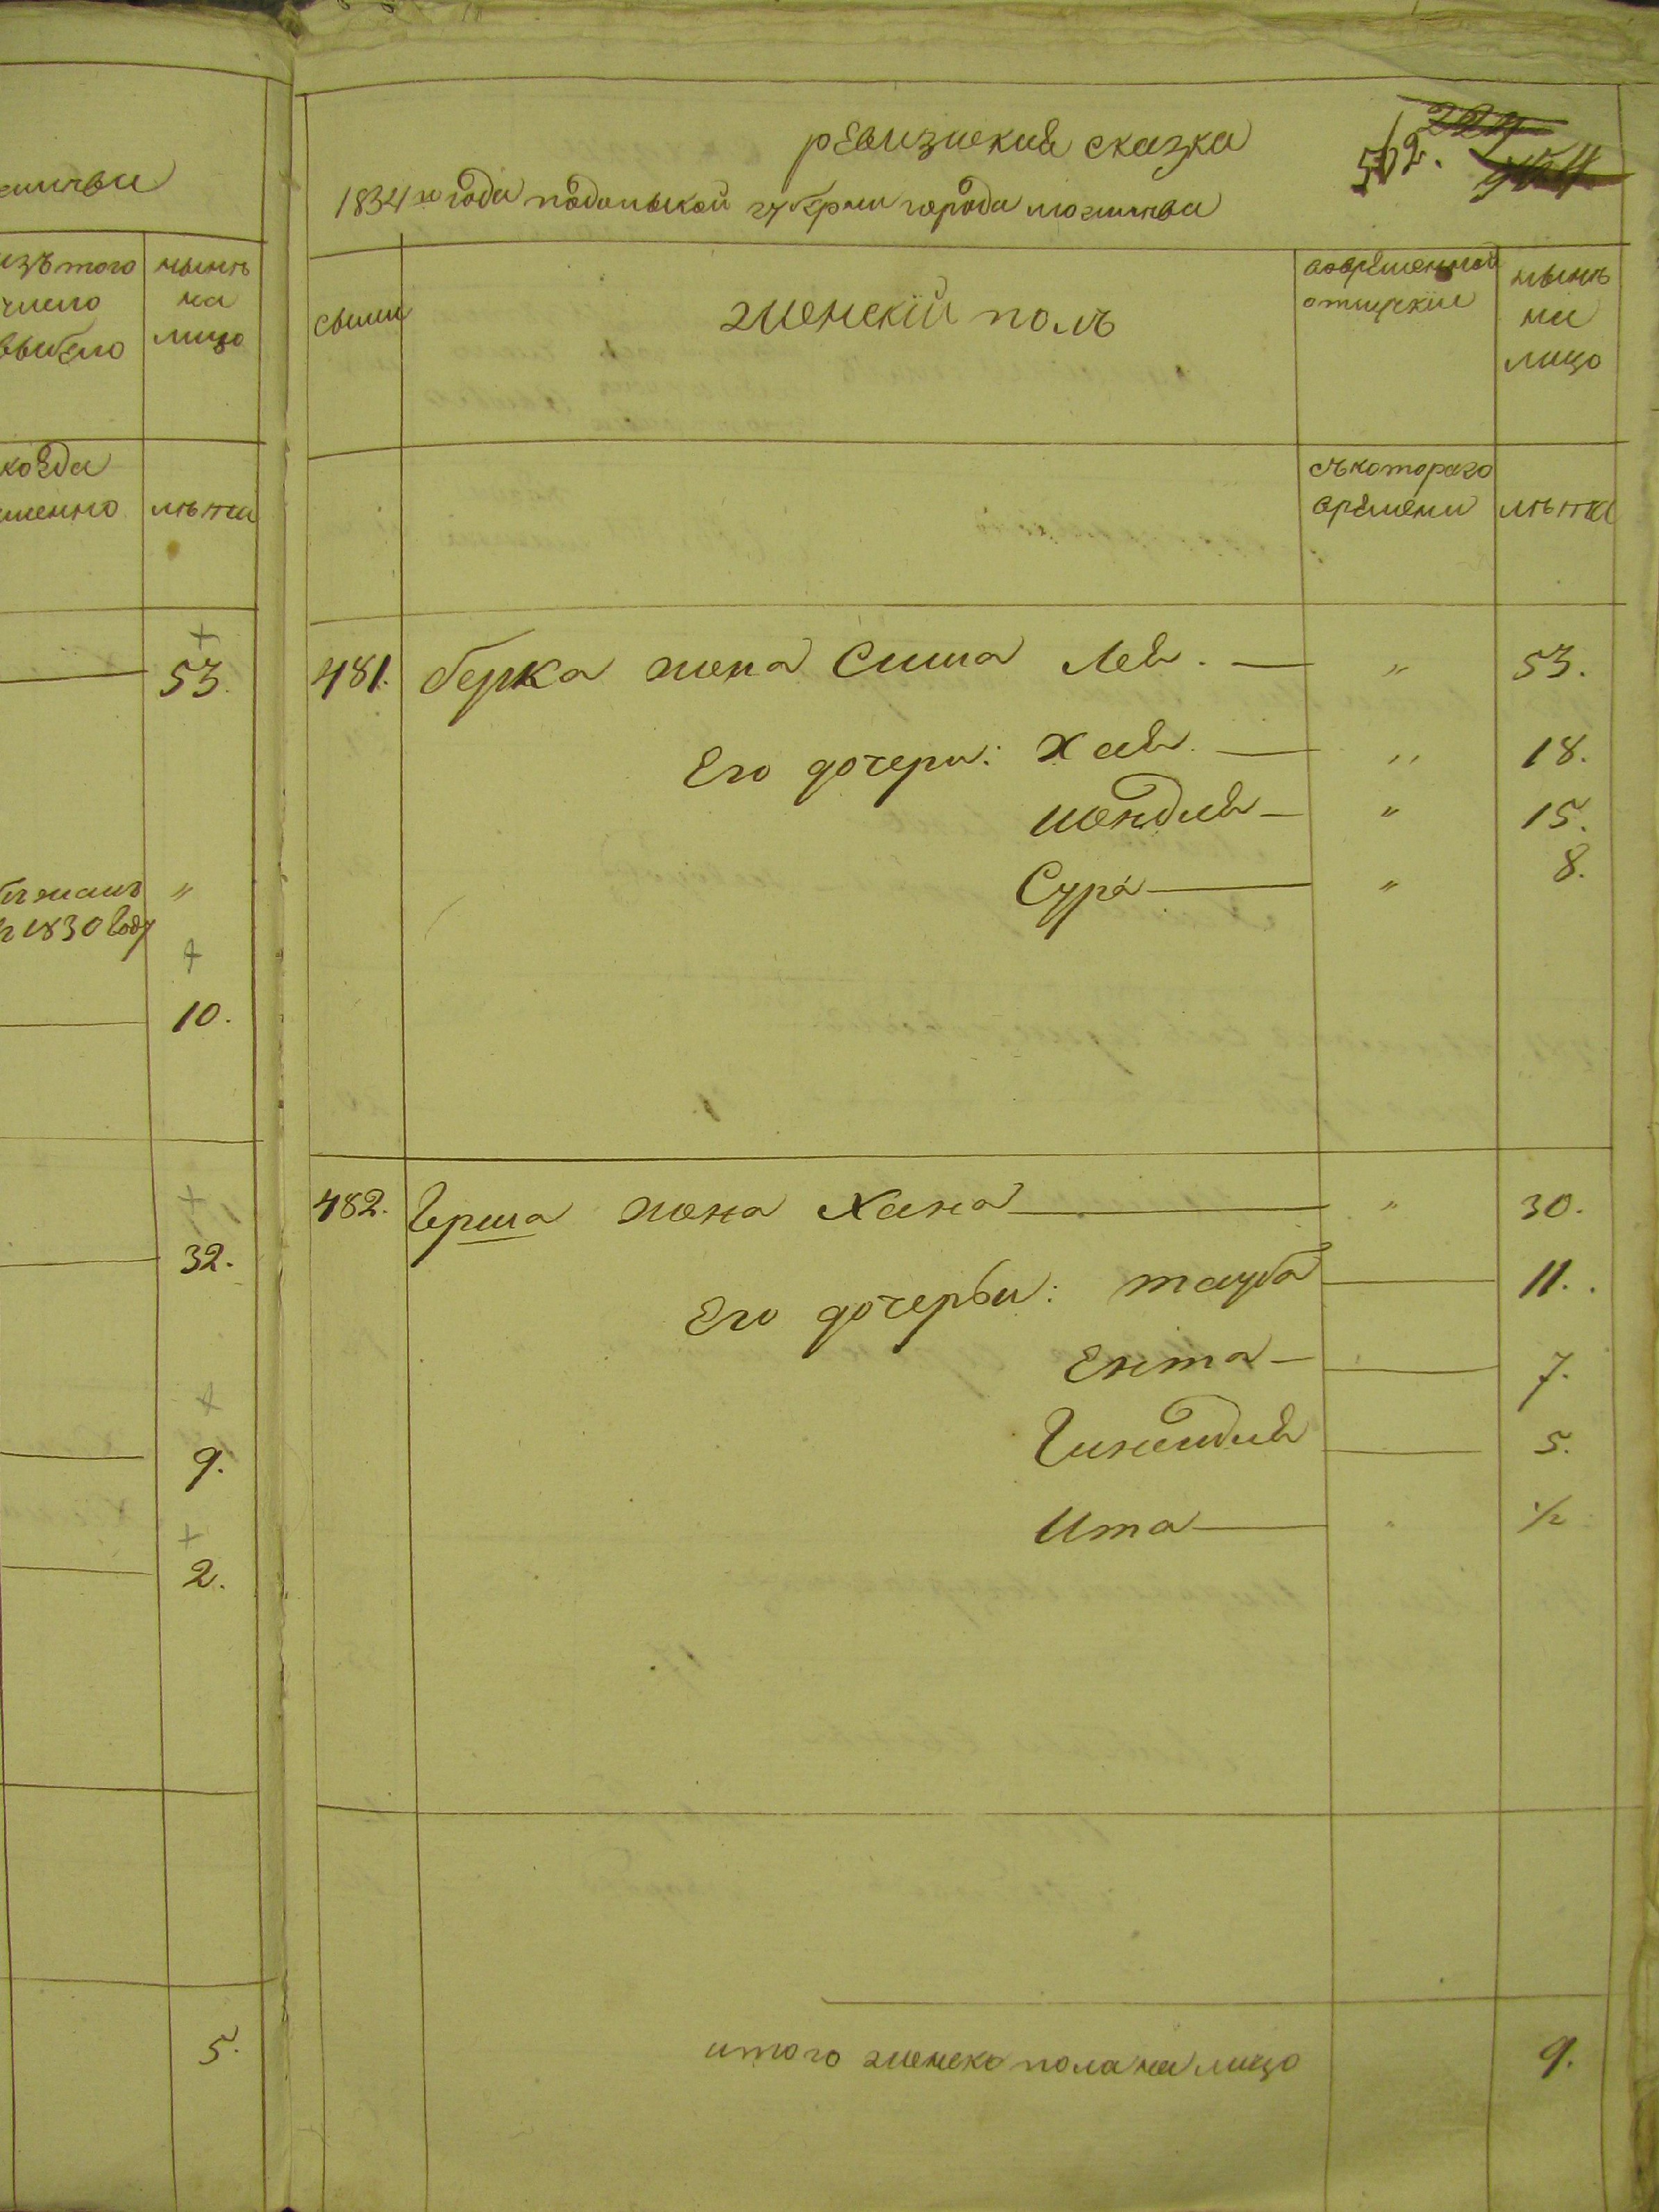 ревизская сказка
1834 го года подольской губерни города могилева
562.
семьи
женскій полъ
вовременной
отлучкѣ
нынѣ
на
лицо
съ котораго
времени
лѣта
481. берка жена Сима Лея. — „ 53.
Его дочери: Хая. — „ 18.
шендля — „ 15.
Сура — „ 8.
482. Герша жена Хана — „ 30.
Его дочерьи: тауба — 11.
Ента — 7.
5.
Ита — „ 1/2
итого женско пола на лицо 9.
изъ того
число
выбыло
нынѣ
на
лицо
когда
именно
лѣта
53.
1830 году „
10.
32.
9.
2.
5.